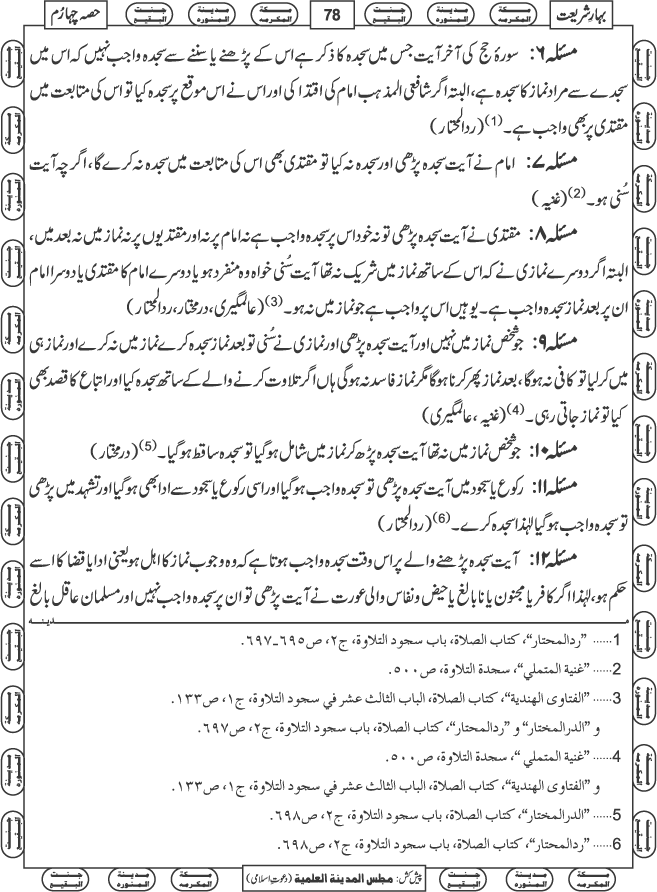 بہارِ شریعت
مکۃ المکرمہ
مدینۃ المنورہ
جنت البقیع
78
مکۃ المکرمہ
مدینۃ المنورہ
جنت البقیع
حصہ چہارم
مسئلہ ۶: سورۂ حج کی آخر آیت جس میں سجدہ کا ذکر ہے اس کے پڑھنے یا سننے سے سجدہ واجب نہیں کہ اس میں
سجدے سے مراد نماز کا سجدہ ہے، البتہ اگر شافعی المذہب امام کی اقتدا کی اور اس نے اس موقع پر سجدہ کیا تو اس کی متابعت میں
مقتدی پر بھی واجب ہے۔(1) (ردالمحتار)
مسئلہ ۷: امام نے آیت سجدہ پڑھی اور سجدہ نہ کیا تو مقتدی بھی اس کی متابعت میں سجدہ نہ کرے گا، اگرچہ آیت
سُنی ہو۔(2) (غنیہ)
مسئلہ ۸: مقتدی نے آیت سجدہ پڑھی تو نہ خود اس پر سجدہ واجب ہے نہ امام پر نہ اور مقتدیوں پر نہ نماز میں نہ بعد میں،
البتہ اگر دوسرے نمازی نے کہ اس کے ساتھ نماز میں شریک نہ تھا آیت سُنی خواہ وہ منفرد ہو یا دوسرے امام کا مقتدی یا دوسرا امام
ان پر بعد نماز سجدہ واجب ہے۔ یوہیں اس پر واجب ہے جو نماز میں نہ ہو۔(3) (عالمگیری، درمختار، ردالمحتار)
مسئلہ ۹: جو شخص نماز میں نہیں اور آیت سجدہ پڑھی اور نمازی نے سُنی تو بعد نماز سجدہ کرے نماز میں نہ کرے اور نماز ہی
میں کر لیا تو کافی نہ ہوگا، بعد نماز پھر کرنا ہوگا مگر نماز فاسد نہ ہوگی ہاں اگر تلاوت کرنے والے کے ساتھ سجدہ کیا اور اتباع کا قصد بھی
کیا تو نماز جاتی رہی۔(4) (غنیہ، عالمگیری)
مسئلہ ۱۰: جو شخص نماز میں نہ تھا آیت سجدہ پڑھ کر نماز میں شامل ہوگیا تو سجدہ ساقط ہوگیا۔(5) (درمختار)
مسئلہ ۱۱: رکوع یا سجود میں آیت سجدہ پڑھی تو سجدہ واجب ہوگیا اور اسی رکوع یا سجود سے ادا بھی ہوگیا اور تشہد میں پڑھی
تو سجدہ واجب ہوگیا لہٰذا سجدہ کرے۔(6) (ردالمحتار)
مسئلہ ۱۲: آیت سجدہ پڑھنے والے پر اس وقت سجدہ واجب ہوتا ہے کہ وہ وجوب نماز کا اہل ہو یعنی ادا یا قضا کا اسے
حکم ہو، لہٰذا اگر کافر یا مجنون یا نابالغ یا حیض و نفاس والی عورت نے آیت پڑھی تو ان پر سجدہ واجب نہیں اور مسلمان عاقل بالغ
مدینہ
1...... ”ردالمحتار“، کتاب الصلاۃ، باب سجود التلاوۃ، ج۲، ص۶۹۵-۶۹۷.
2...... ”غنیۃ المتملي“، سجدۃ التلاوۃ، ص۵۰۰.
3...... ”الفتاوی الھندیۃ“، کتاب الصلاۃ، الباب الثالث عشر في سجود التلاوۃ، ج۱، ص۱۳۳.
و ”الدرالمختار“ و ”ردالمحتار“، کتاب الصلاۃ، باب سجود التلاوۃ، ج۲، ص۶۹۷.
4...... ”غنیۃ المتملي“، سجدۃ التلاوۃ، ص۵۰۰.
و ”الفتاوی الھندیۃ“، کتاب الصلاۃ، الباب الثالث عشر في سجود التلاوۃ، ج۱، ص۱۳۳.
5...... ”الدرالمختار“، کتاب الصلاۃ، باب سجود التلاوۃ، ج۲، ص۶۹۸.
6...... ”ردالمحتار“، کتاب الصلاۃ، باب سجود التلاوۃ، ج۲، ص۶۹۸.
مکۃ المکرمہ
مدینۃ المنورہ
پیش کش: مجلس المدینۃ العلمیۃ (دعوتِ اسلامی)
مکۃ المکرمہ
مدینۃ المنورہ
جنت البقیع